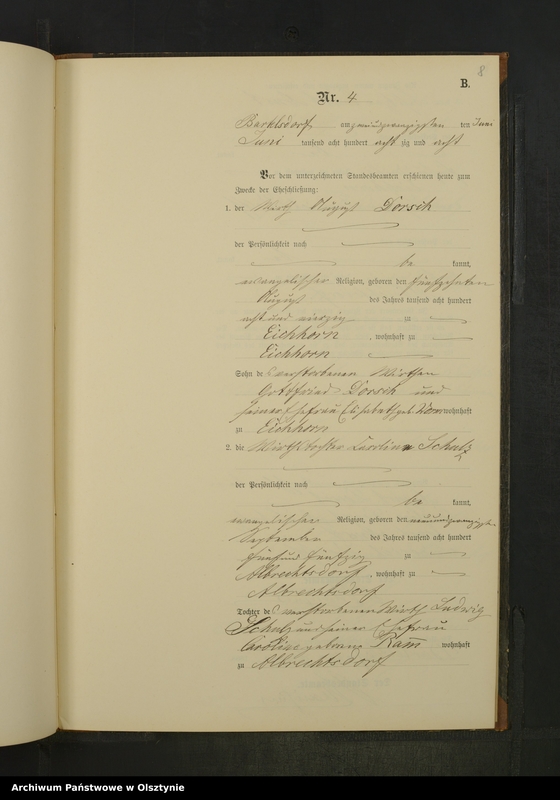 8
B.
Nr. 4
Bartelsdorf am zweiundzwanzigsten ten Juni
Juni tausend acht hundert acht zig und acht
Vor dem unterzeichneten Standesbeamten erschienen heute zum
Zwecke der Eheschließung:
1. der Wirth August Dorsch
der Persönlichkeit nach
be kannt,
evangelischer Religion, geboren den fünfzehnten
August des Jahres tausend acht hundert
acht und vierzig zu
Eichhorn, wohnhaft zu
Eichhorn
Sohn des verstorbenen Wirthen
Gottfried Dorsch und
seiner Ehefrau Elisabeth geb. wohnhaft
zu Eichhorn
2. die Wirthstochter Caroline Schulz
der Persönlichkeit nach
be kannt,
evangelischer Religion, geboren den neunundzwanzigsten
September des Jahres tausend acht hundert
fünfund fünfzig zu
Albrechtsdorf, wohnhaft zu
Albrechtsdorf
Tochter des verstorbenen Wirth Ludwig
Schulz und seiner Ehefrau
Caroline geborene Ramm wohnhaft
zu Albrechtsdorf
Archiwum Państwowe w Olsztynie